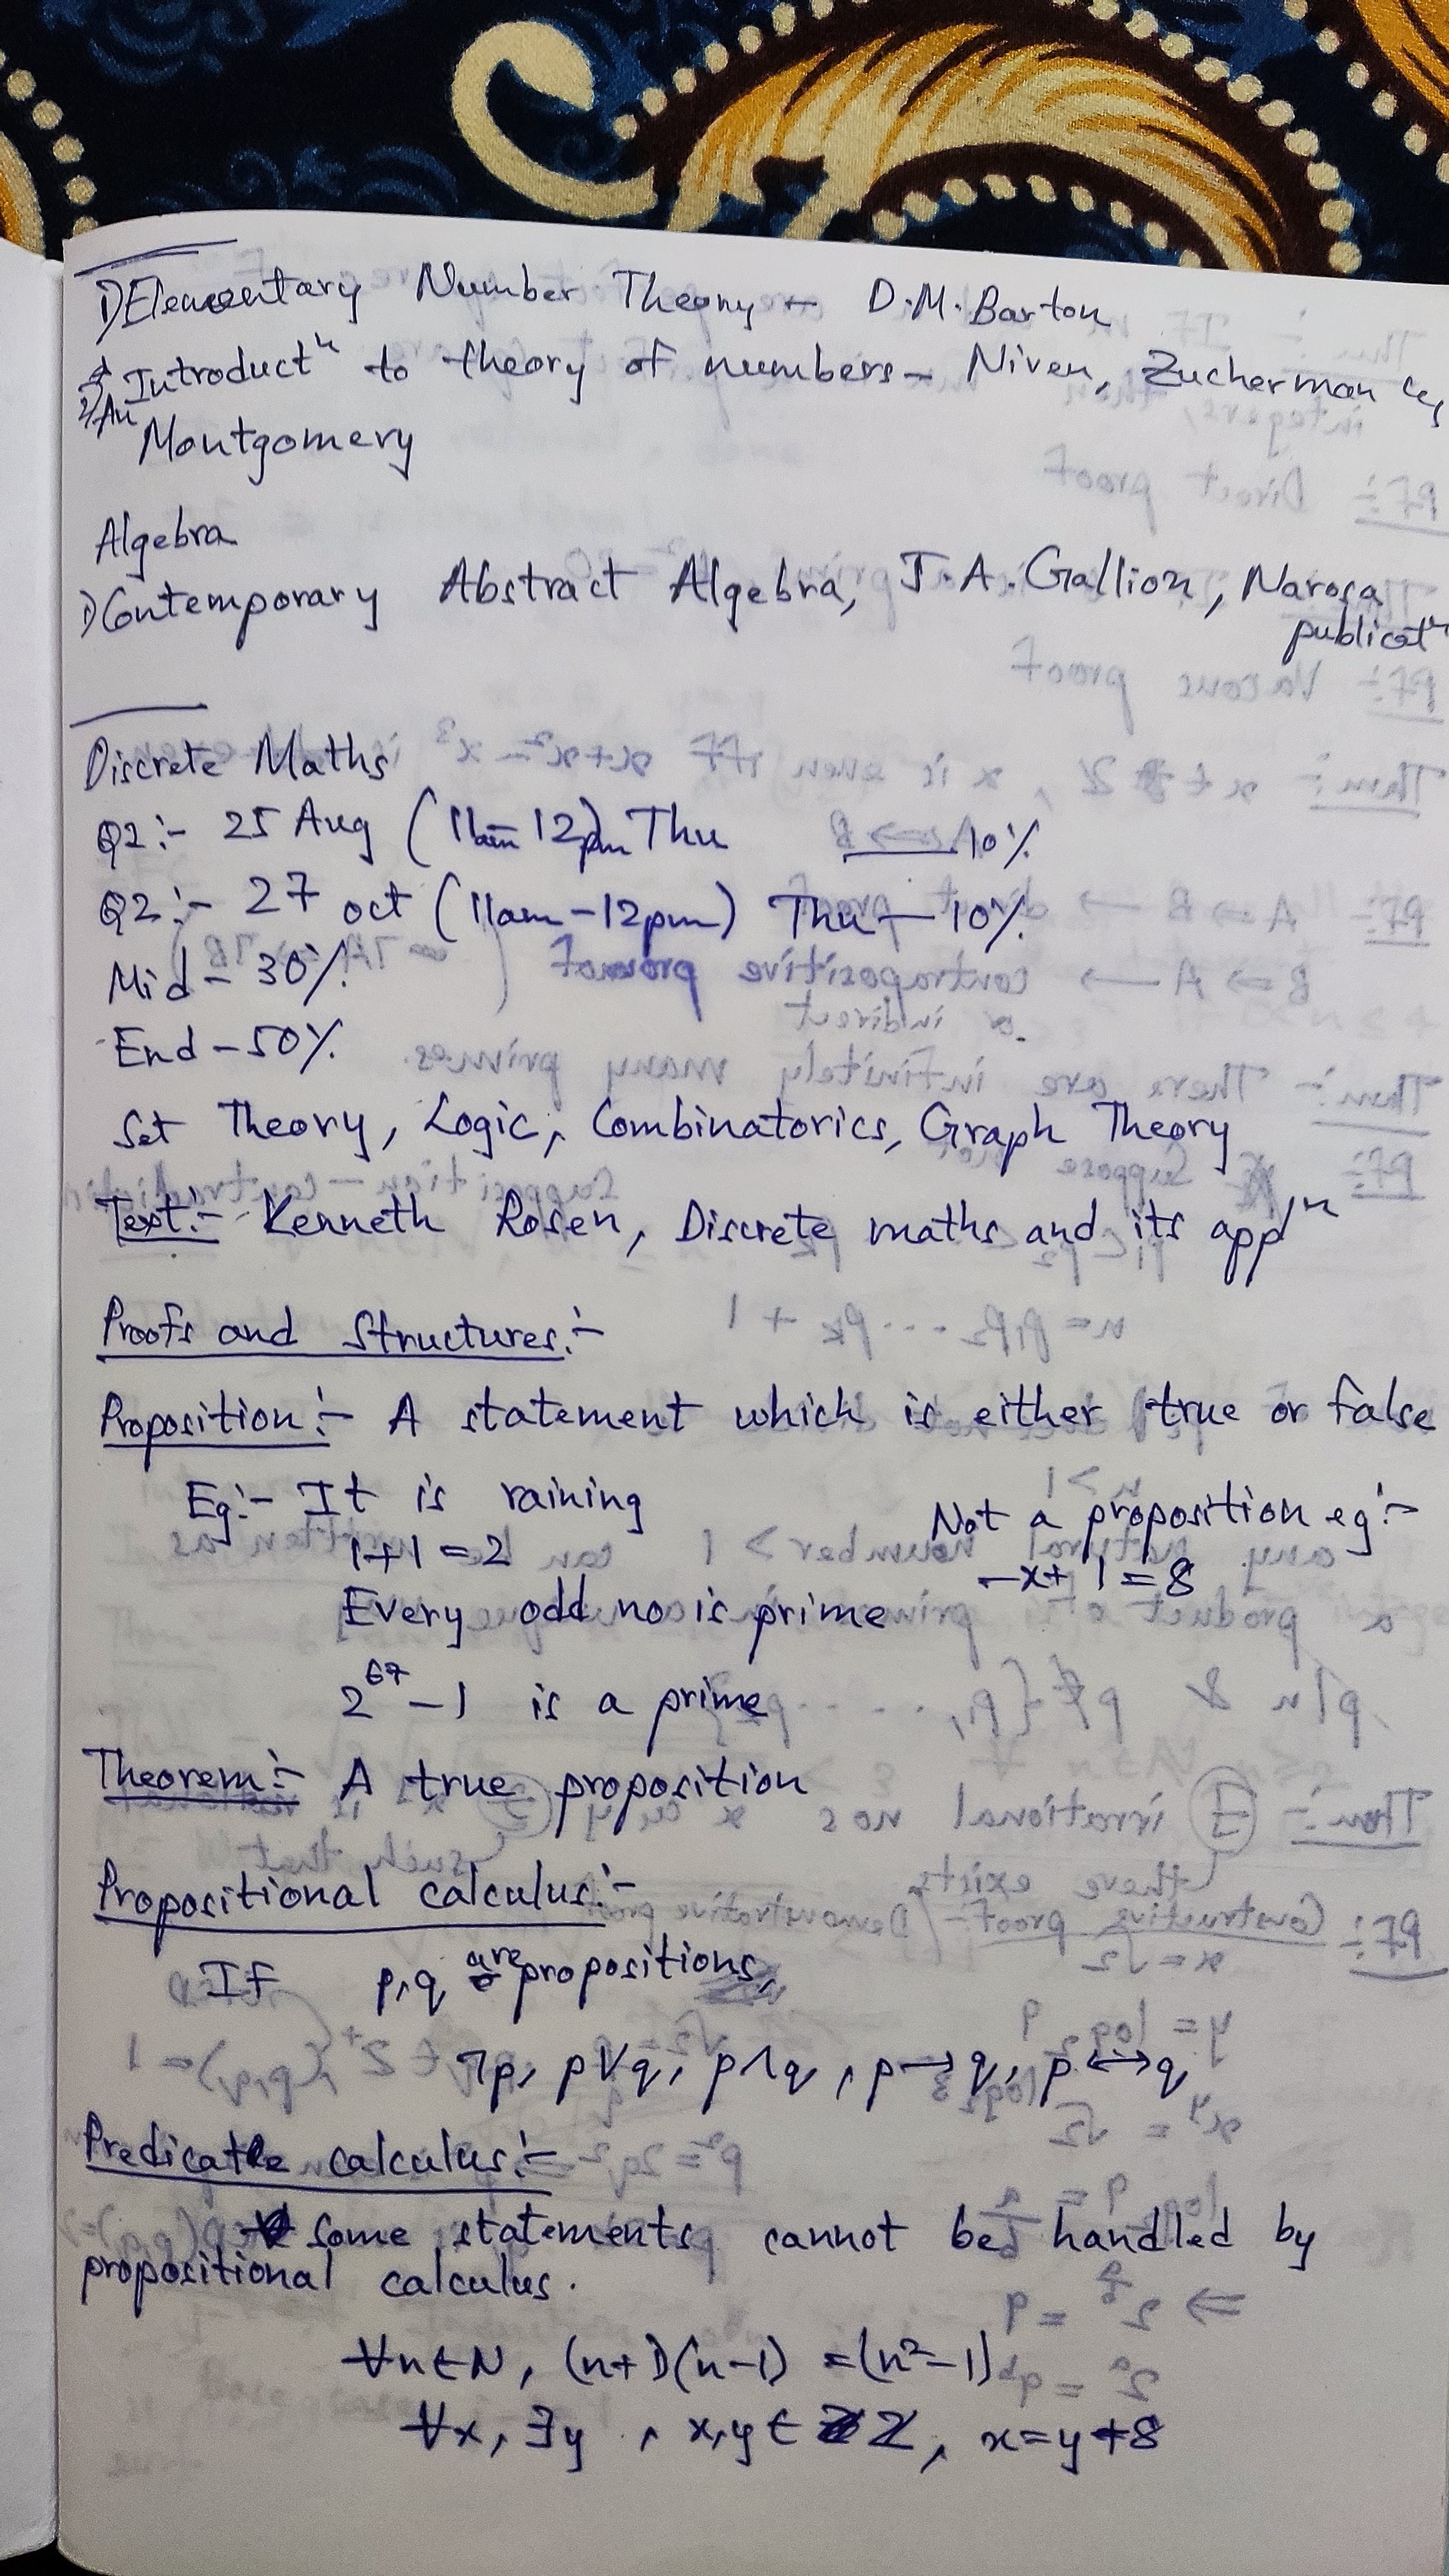 1) Elementary Number Theory - D.M. Barton
2) An Introductⁿ to theory of numbers - Niven, Zucherman &
Montgomery
Algebra
1) Contemporary Abstract Algebra, J.A. Gallion, Narosa
publicatⁿ
Discrete Maths
Q2:- 25 Aug (11am-12pm) Thu — 10%
Q2:- 27 oct (11am-12pm) Thu — 10%
Mid - 30%
End - 50%
Set Theory, Logic, Combinatorics, Graph Theory
Text:- Kenneth Rosen, Discrete maths and its appⁿ
Proofs and Structures:-
Proposition:- A statement which is either true or false
Eg:- It is raining
Not a proposition eg:-
1+1=2
-x+1=8
Every odd no is prime
2⁶⁷-1 is a prime
Theorem:- A true proposition
Propositional calculus:-
If p,q are propositions,
¬p, p∨q, p∧q, p→q, p↔q
Predicate calculus:-
Some statements cannot be handled by
propositional calculus.
∀n∈N, (n+1)(n-1) = (n²-1)
∀x, ∃y, x,y ∈ Z, x=y+8